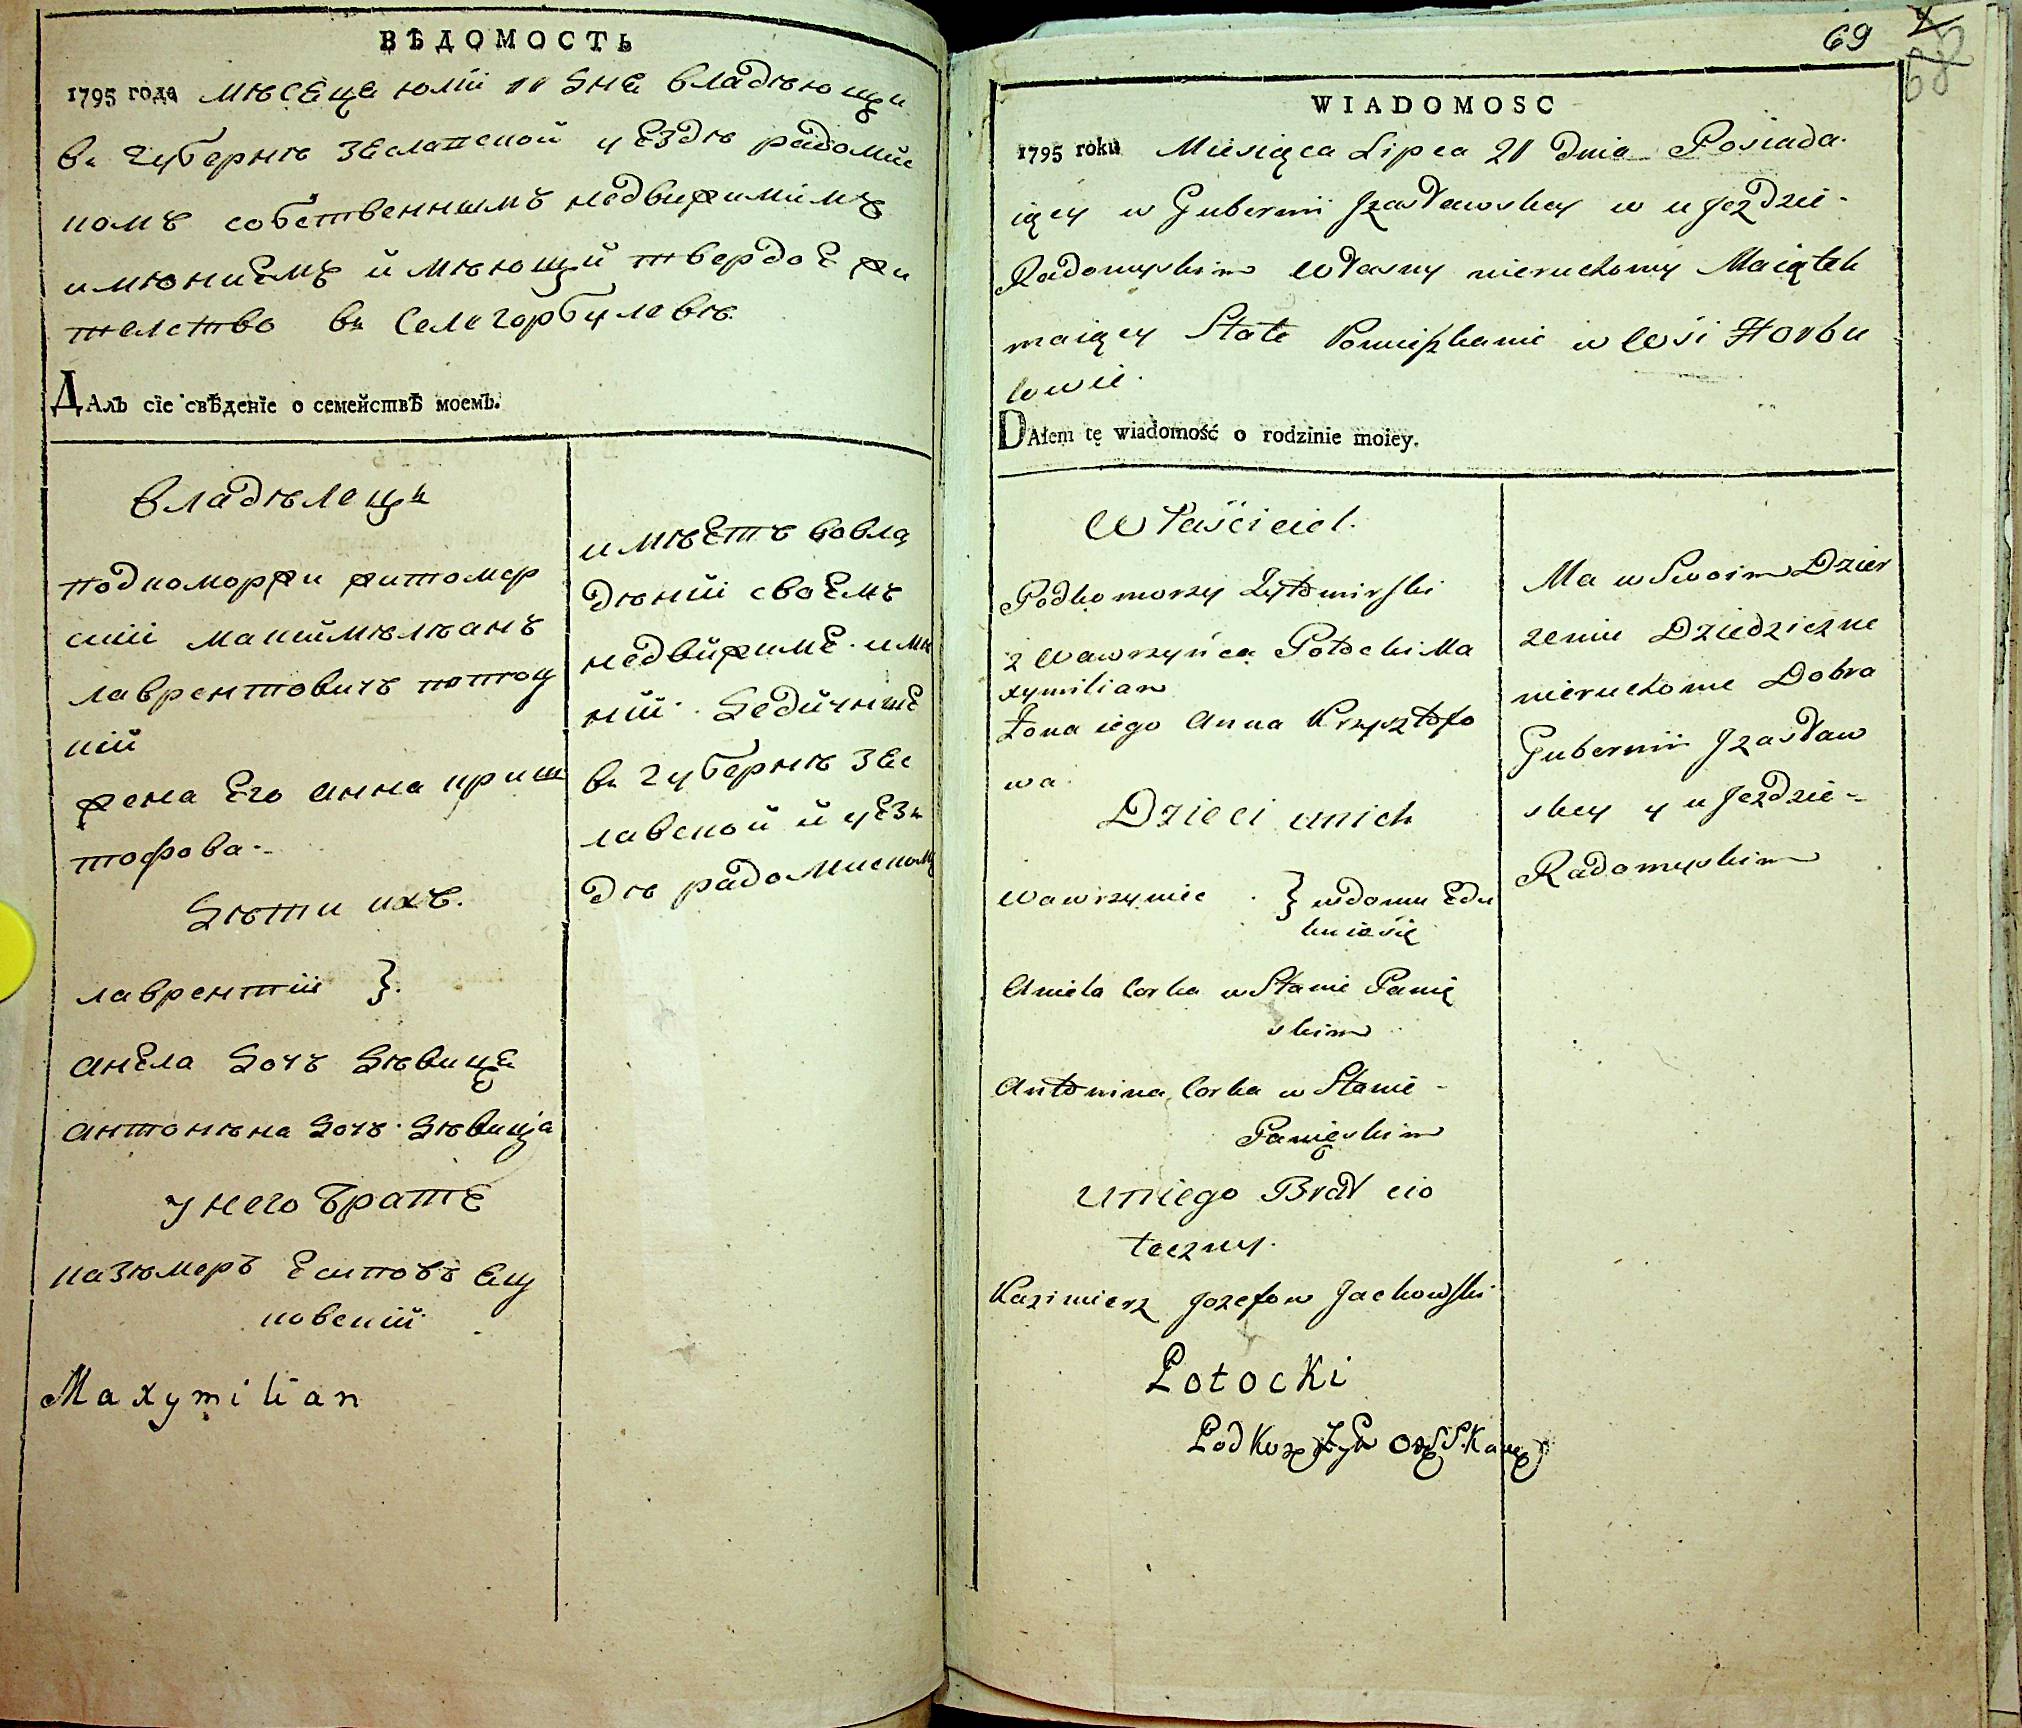 ВѢДОМОСТЬ
1795 года мѣсеца юлii 11 дня владѣющи
въ губернѣ заславской уездѣ радомис
комъ собственнымъ недвижимимъ
имѣниемъ имѣющи твердое жи
телство въ селе горбулевѣ
ДАлъ сiе свѣденiе о семействѣ моемъ.
владѣлецъ
подкоморжи житомер
скiй максимѣлѣанъ
лаврентовичъ потоц
кiй
жена его анна криш
тофова
дѣти ихъ.
лаврентiй }.
анела дочъ дѣвица
антонѣна дочъ дѣвица
у него братъ
казѣмеръ еситовъ яц
ковскiй
Maxymilian
имѣетъ вовла
дѣнiи своемъ
недвижиме имѣ
нiи дедичние
въ губернѣ зас
лавской и уез
дѣ радомиском
69
68
WIADOMOSC
1795 roku Miesiąca Lipca 21 dnia Posiada
iący w Gubernii Jzasławskey w ujeździe
Radomyskim własny nieruchomy Maiątek
maiący Stałe Pomięszkanie w wsi Horbu
lowie.
DAłem tę wiadomość o rodzinie moiey.
Właściciel.
Podkomorzy Żytomirski
z Wawrzyńca Potocki Ma
xymilian
Żona iego Anna Krzysztofo
wa.
Dzieci unich
Wawrzyniec } wdomu Edu
kuie się
Aniela Corka w Stanie Panię
skim
Antonina Corka w Stanie
Panięskim
Uniego Brat cio
teczny.
Kazimierz Jozefow Jackowski
Potocki
Ma w Swoim Dzier
zeniu Dziedziczne
nieruchome Dobra
Gubernii Jzasław
skey y ujeździe
Radomyskim